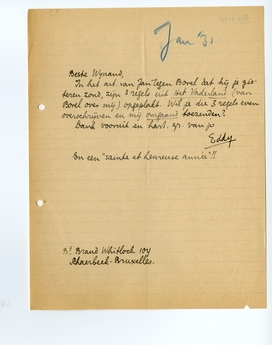 Jan '31
Beste Wynand,
In het art. van Jan tegen Borel dat hij je gis-
teren zond, zijn 3 regels uit Het Vaderland (van
Borel over mij) opgeplakt. Wil je die 3 regels even
overschrijven en mij omgaand toezenden?
Dank vooruit en hart. gr. van je
Eddy
Bon een "sainte et heureuse année"!!
Bd. Brand Whitlock 104
Schaerbeek-Bruxelles.